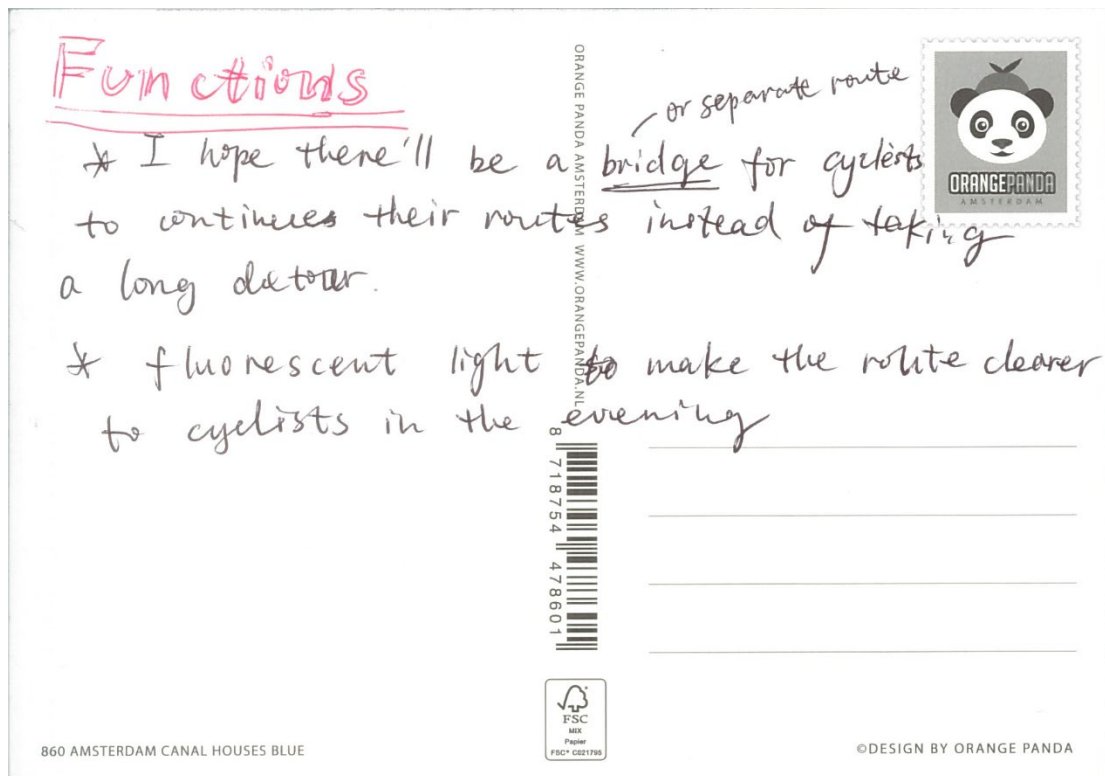 Functions
or separate route
* I hope there'll be a bridge for cyclists
to continues their routes instead of taking
a long detour.
* fluorescent light to make the route clearer
to cyclists in the evening
ORANGE PANDA AMSTERDAM WWW.ORANGEPANDA.NL
8 718754 478601
ORANGEPANDA
AMSTERDAM
FSC
MIX
Papier
FSC® C021795
860 AMSTERDAM CANAL HOUSES BLUE
©DESIGN BY ORANGE PANDA